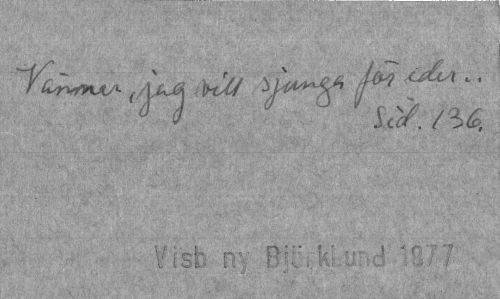 Vänner, jag vill sjunga för eder..
Sid. 136.
Visb ny Björklund 1877